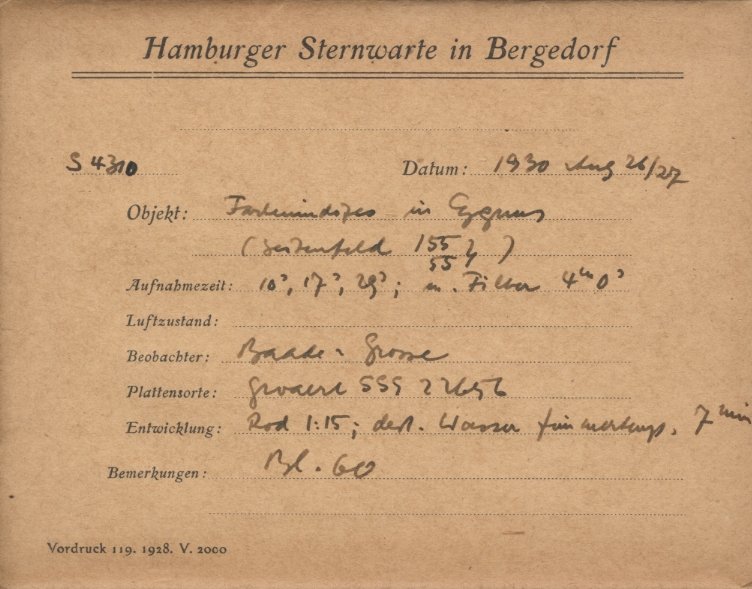 Hamburger Sternwarte in Bergedorf
S 4310 Datum: 1930 Aug 26/27
Objekt: Farbenindizes in Cygnus
( 155 )
55
Aufnahmezeit: 10ˢ, 17ˢ, 29ˢ; m. Filter 4ᵐ 0ˢ
Luftzustand:
Beobachter: Baade - Grosse
Plattensorte: Gevaert SSS 22656
Entwicklung: Rod 1:15; dest. Wasser 7 min
Bemerkungen: Bl. 60
Vordruck 119. 1928. V. 2000